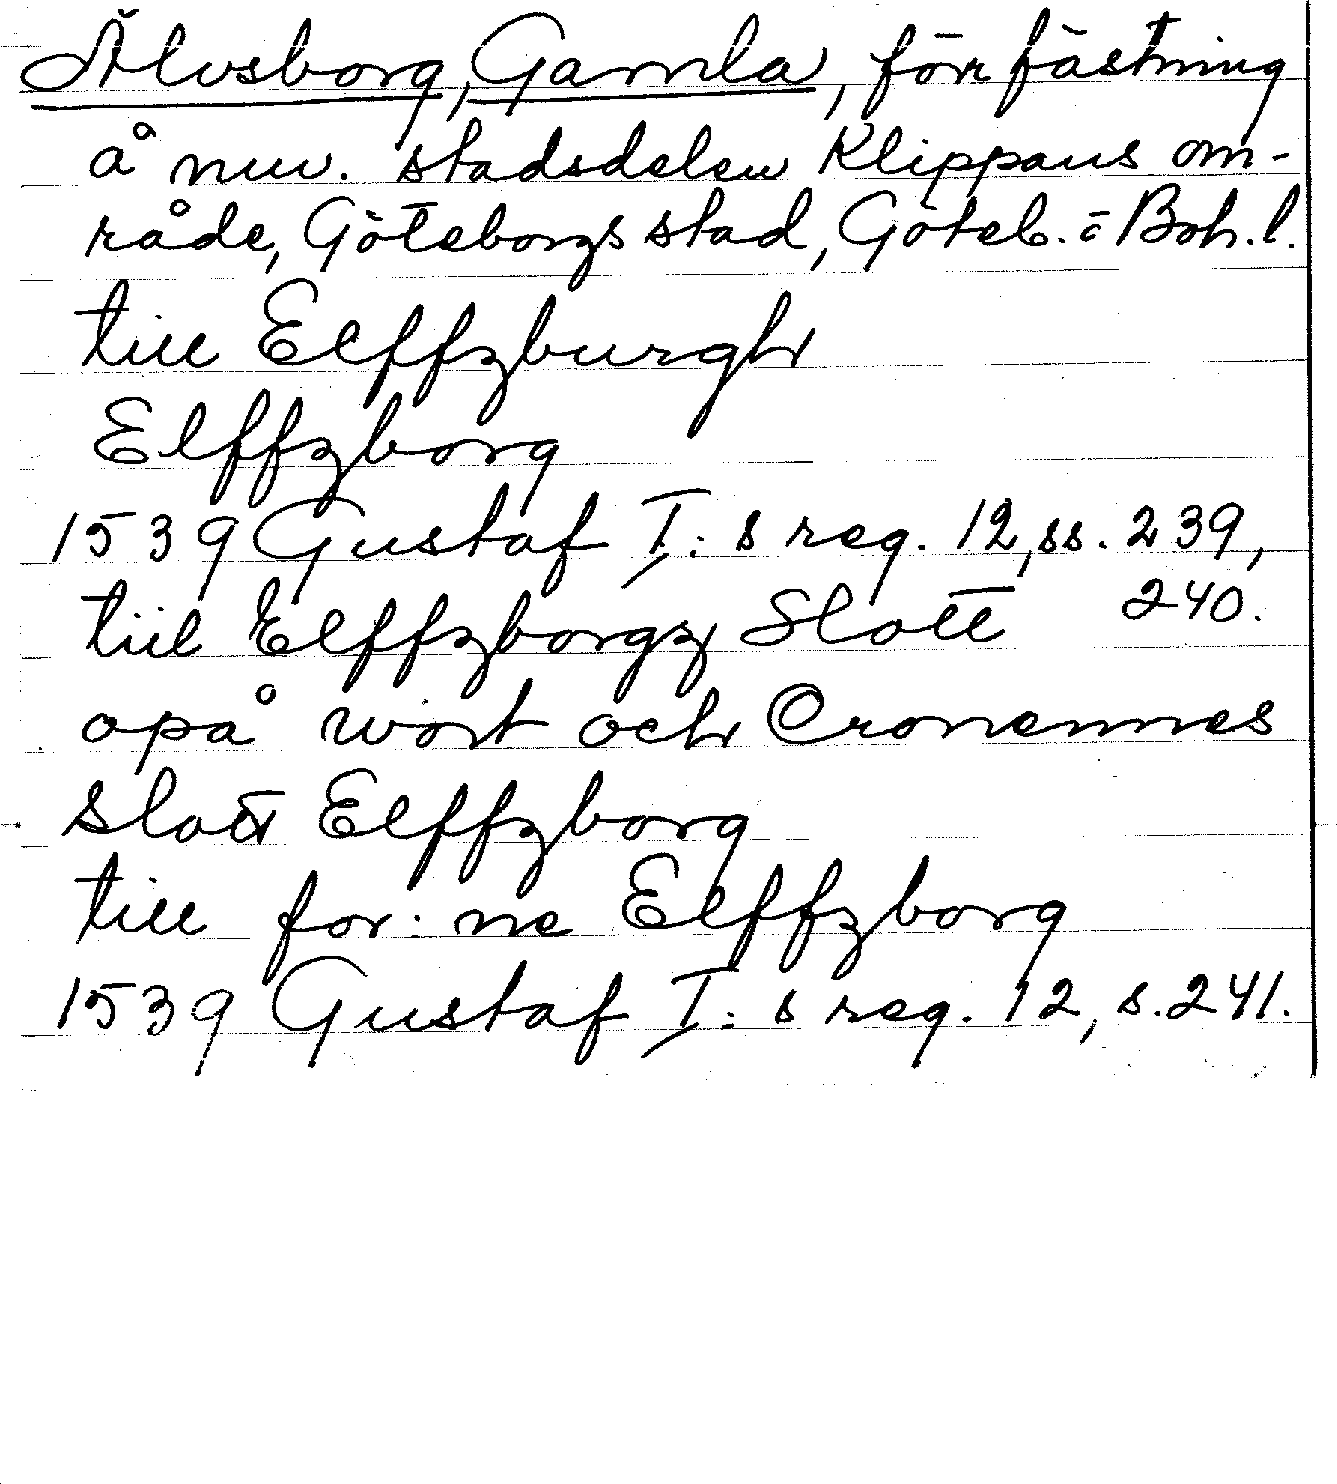 Älvsborg, Gamla, förr fästning
å nuv. stadsdelen Klippans om-
råde, Göteborgs stad, Göteb. o Boh. l.
till Elffzburgh
Elffzborg
1539 Gustaf I:s reg. 12, ss. 239,
240.
till Elffzborgz Slott
opå wort och Cronennes
slott Elffzborg
till for:ne Elffzborg
1539 Gustaf I:s reg. 12, s. 241.